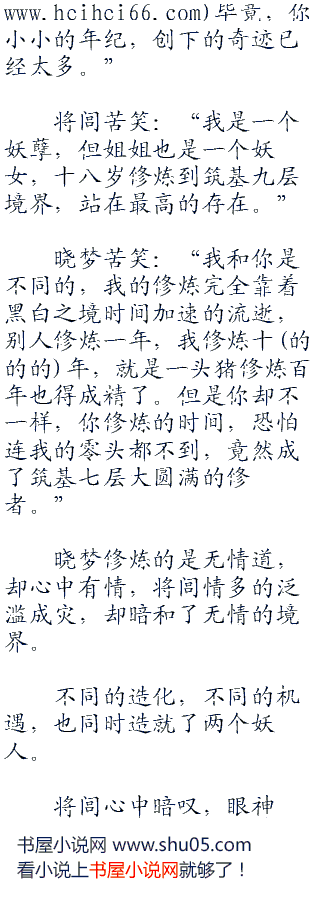 www.hcihci66.com)毕竟，你
小小的年纪，创下的奇迹已
经太多。”
将闾苦笑：“我是一个
妖孽，但姐姐也是一个妖
女，十八岁修炼到筑基九层
境界，站在最高的存在。”
晓梦苦笑：“我和你是
不同的，我的修炼完全靠着
黑白之境时间加速的流逝，
别人修炼一年，我修炼十(的
的的)年，就是一头猪修炼百
年也得成精了。但是你却不
一样，你修炼的时间，恐怕
连我的零头都不到，竟然成
了筑基七层大圆满的修
者。”
晓梦修炼的是无情道，
却心中有情，将闾情多的泛
滥成灾，却暗和了无情的境
界。
不同的造化，不同的机
遇，也同时造就了两个妖
人。
将闾心中暗叹，眼神
书屋小说网 www.shu05.com
看小说上书屋小说网就够了！